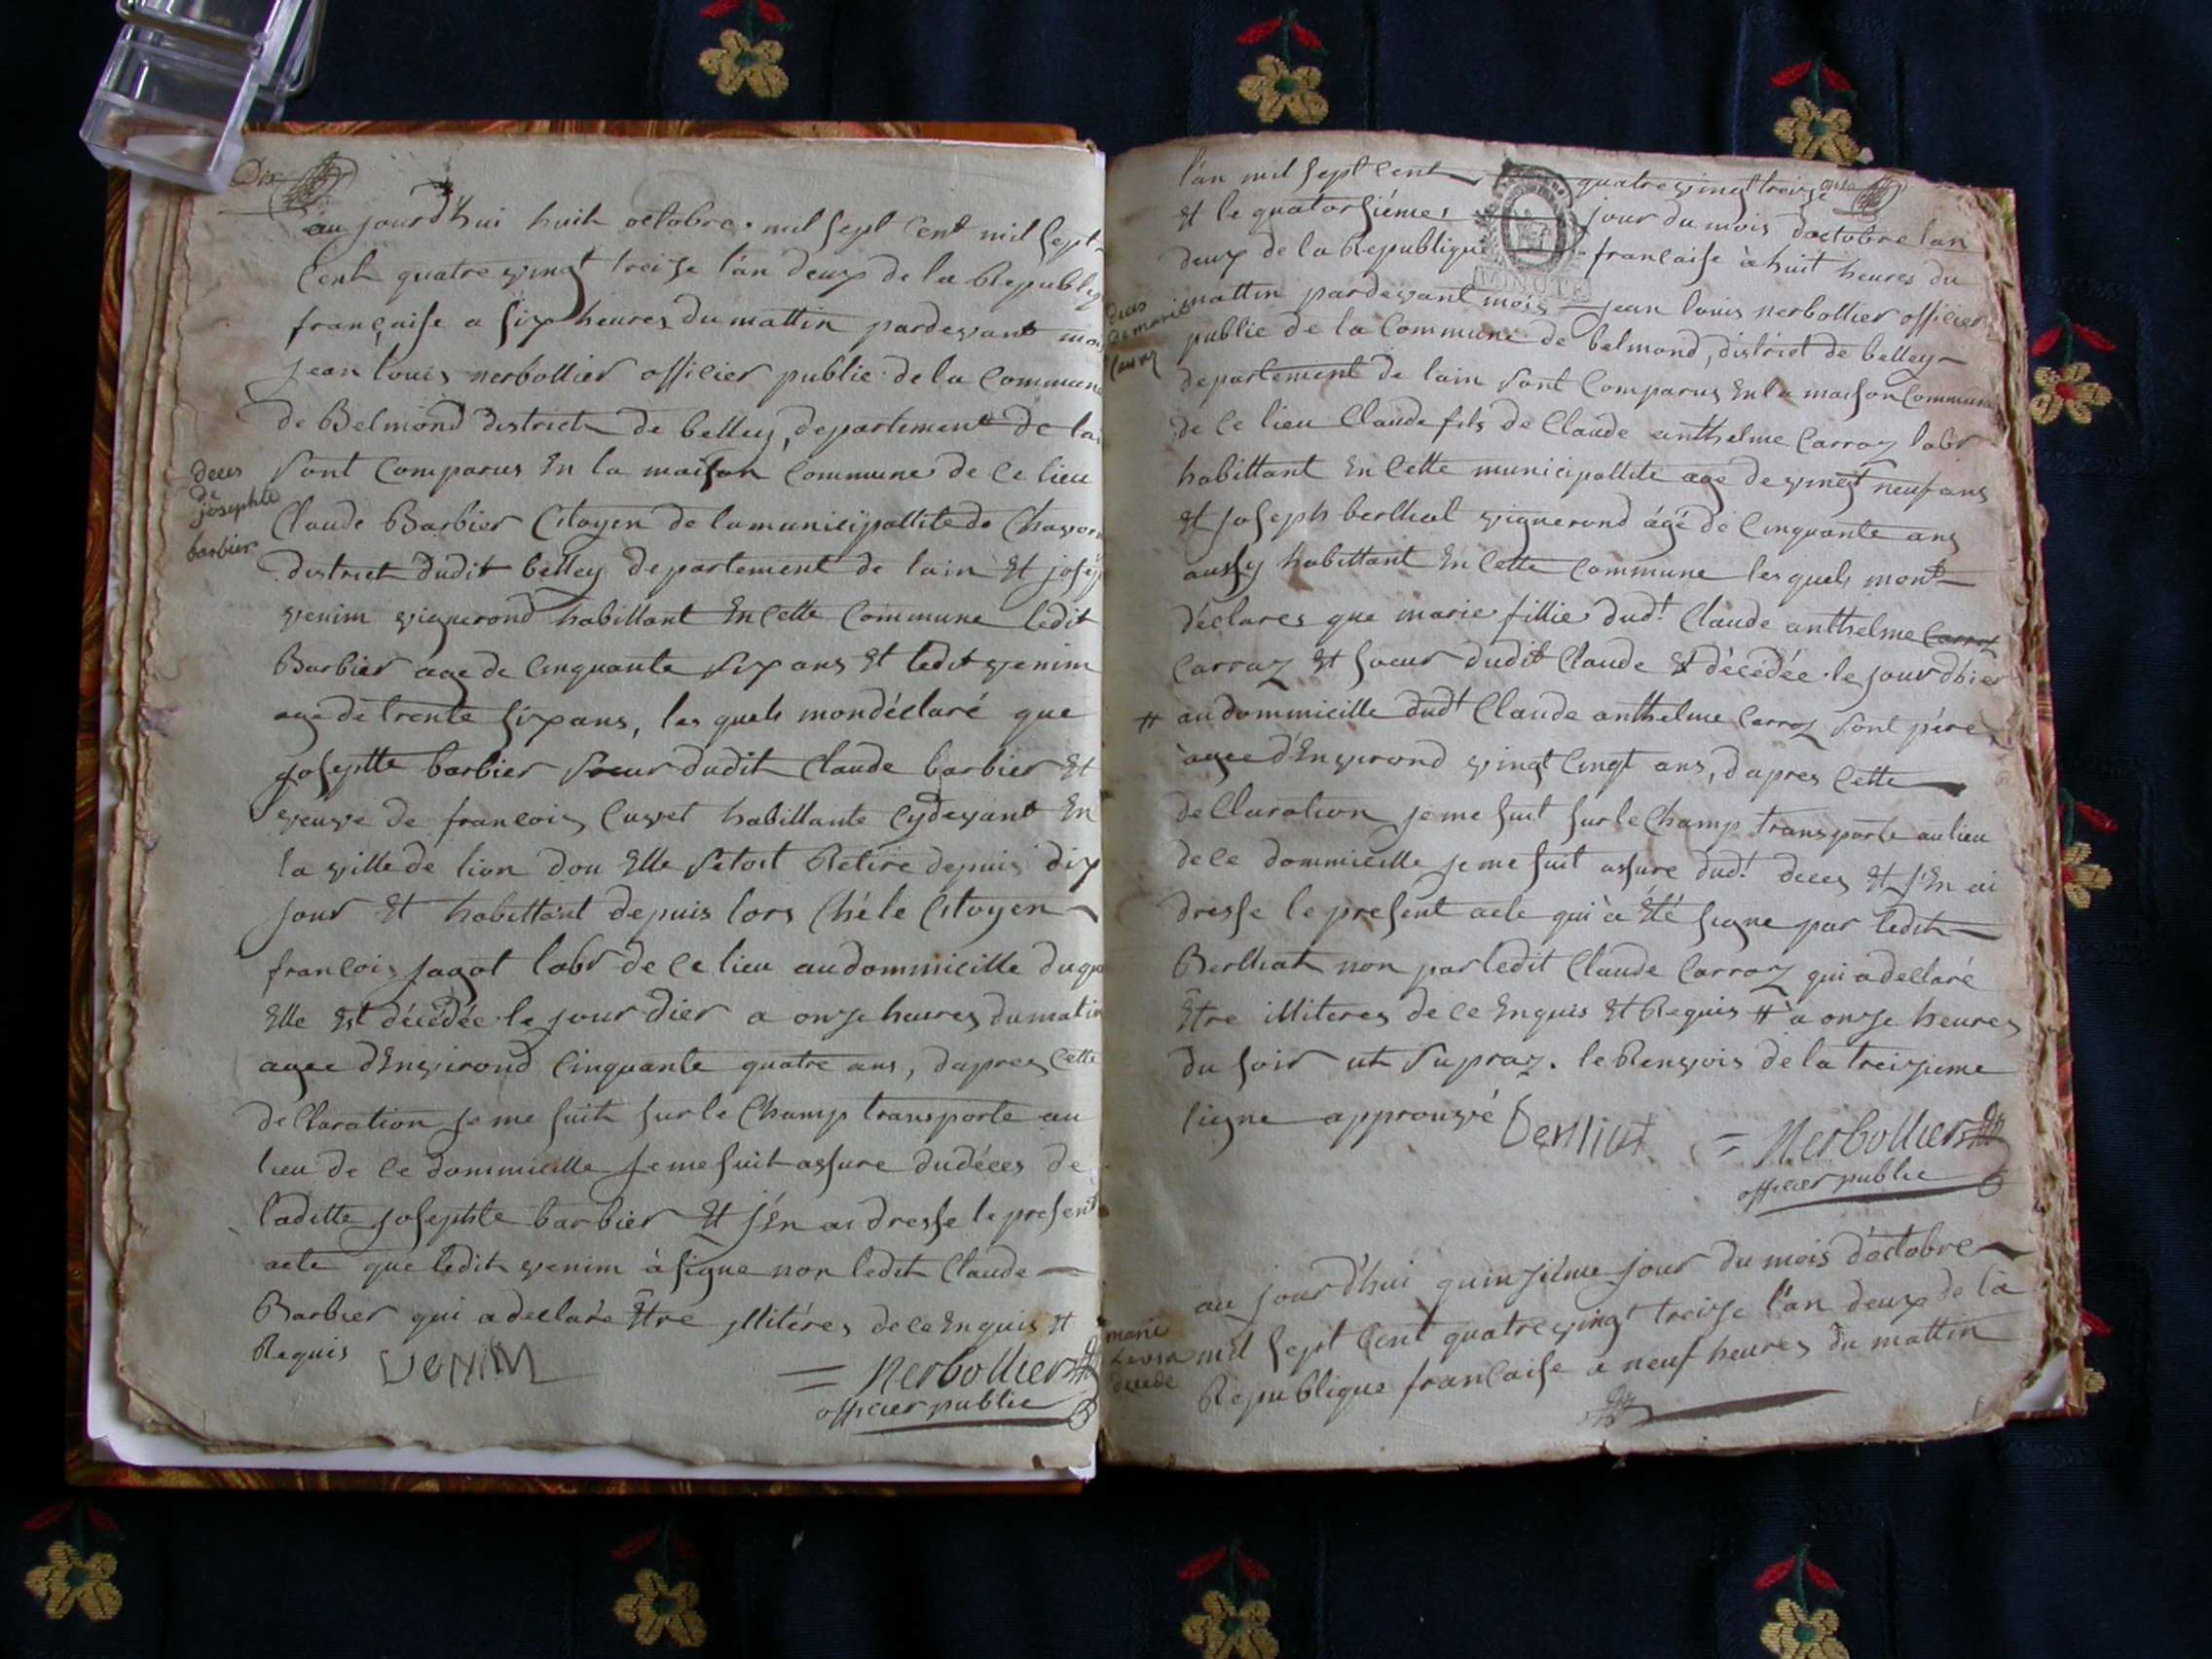 Dix
au jourd'hui huit octobre mil sept cent mil sept
cent quatre vingt treise l'an deux de la Republiq
française a six heures du mattin pardevant moi
jean louis nerbollier officier public de la commune
de Belmond district de belley, departement de lai
decès de josephte barbier
sont comparus En la maison commune de ce lieu
Claude Barbier Citoyen de la municipallité de Chavorn
district dudit belley departement de lain Et josep
venim vignerond habittant En cette Commune ledit
Barbier age de cinquante six ans Et ledit venim
age de trente six ans, les quels mon déclaré que
Joseptte barbier sœur dudit Claude barbier Et
veuve de francois cuvet habittante cy devant En
la ville de lion dou Elle setoit Retire depuis dix
jour Et habittant depuis lors Ché le Citoyen
francois jagot labr de ce lieu au dommicille duque
Elle Est décédée le jour dier a onze heures du matin
agee dEnvirond Cinquante quatre ans, dapres Cette
declaration je me suit sur le Champ transporte au
lieu de ce dommicille je me suit assure du déces de
laditte josephte barbier Et j'En ai dresse le present
acte que ledit venim à signe non ledit Claude
Barbier qui a declaré Être illitéres de ce Enquis Et
Requis VENIM = Nerbollier
officier public
l'an mil sept cent quatre vingt treize onze
Et le quatorsiémes jour du mois d'octobre lan
deux de la Republique francaise à huit heures du
MINUTE
deces de marie Carraz
mattin pardevant mois jean louis nerbollier officier
public de la Commune de belmond, district de belley
departement de lain sont Comparus En la maison Commune
de ce lieu Claude fils de Claude anthelme Carraz labr
habittant En cette municipallité age de vingt neuf ans
Et joseph berlliat vignerond âgé de Cinquante ans
aussy habittant En cette Commune les quels mont
déclares que marie fillie dudt Claude anthelme Carraz
Carraz Et sœur dudit Claude Et décédée le jour dhier
# au dommicille dudt Claude anthelme Carraz sont père
agee d'Environd vingt cingt ans, dapres Cette
declaration je me suit sur le Champ transporte au lieu
de ce dommicille je me suit assure dudt deces Et j'En ai
dresse le present acte qui à Été signe par ledit
Berlliat non par ledit Claude Carraz qui a declaré
Être illiteres de ce Enquis Et Requis # à onze heures
du soir ut supraz. le Renvois de la treizieme
ligne approuvé Berlliat = Nerbollier
officier public
au jourd'hui quinziéme jour du mois d'octobre
mil sept Cent quatre vingt treize l'an deux de la
marie décédé
Republique francaise a neuf heures du mattin